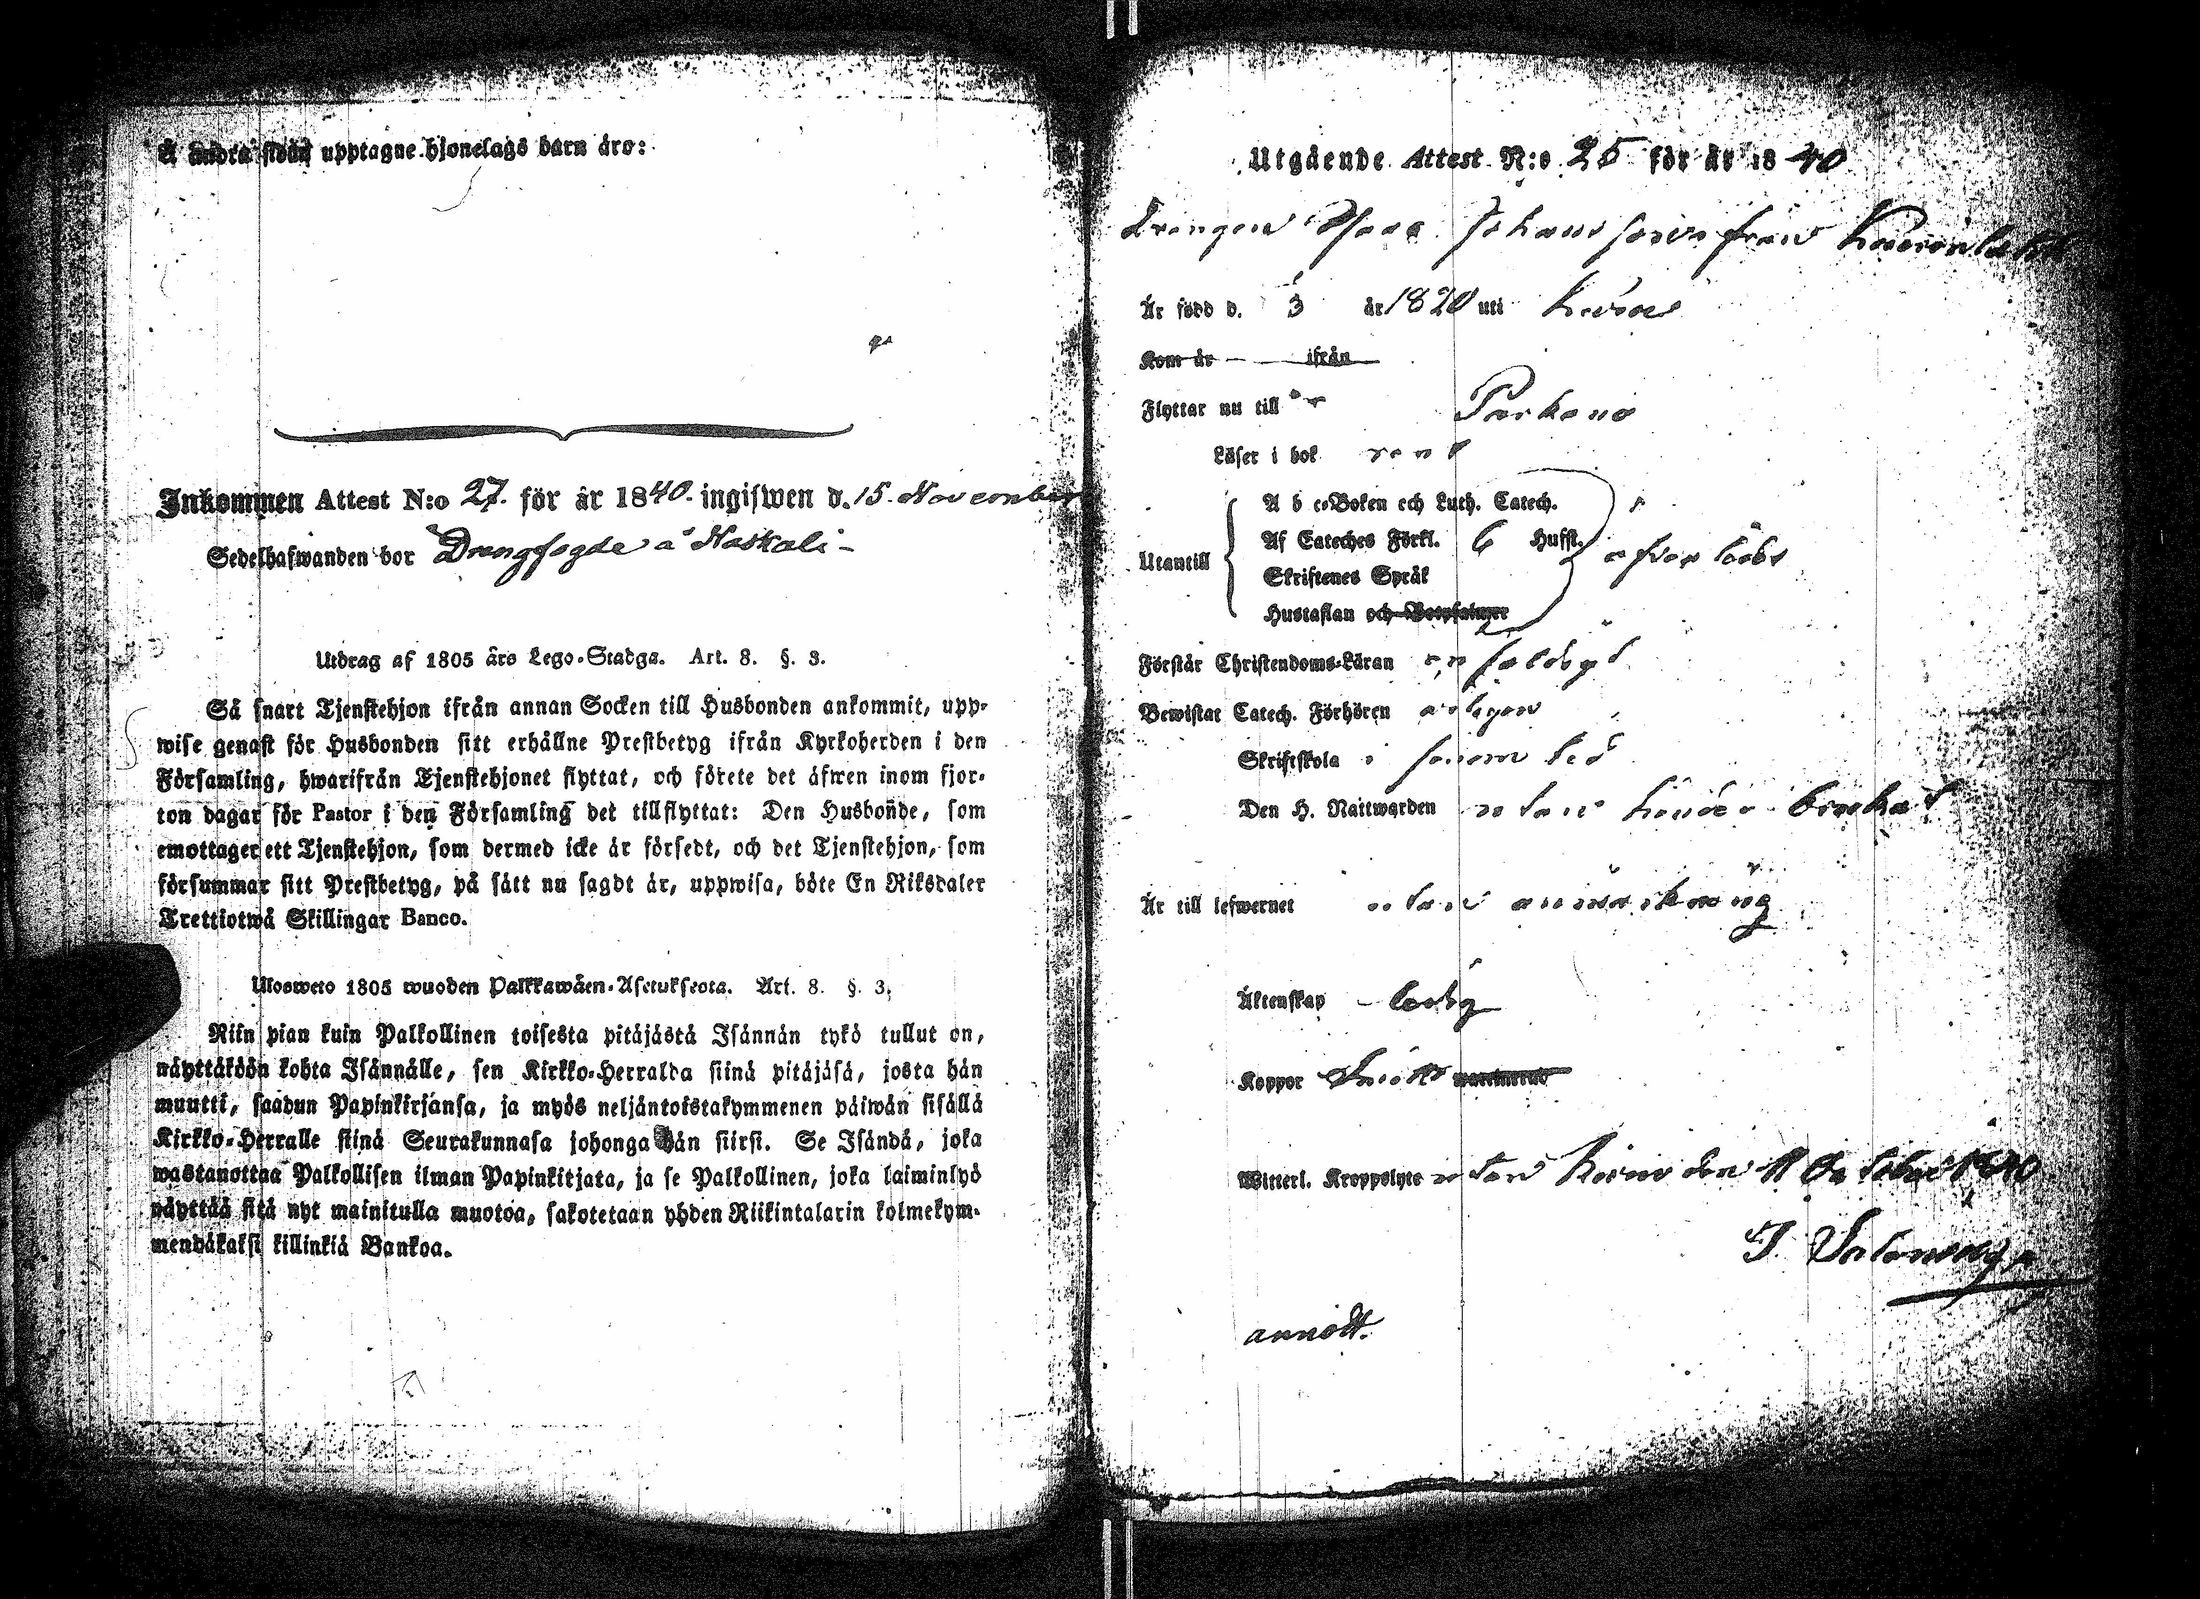 Å andra sidan upptagne hjonelags barn äro:
Inkommen Attest N:o 27. för år 1840. ingifwen d. 15. November
Sedelhafwanden bor Drengfogde å Naskali -
Utdrag af 1805 års Lego-Stadga. Art. 8. §. 3.
Så snart Tjenstehjon ifrån annan Socken till Husbonden ankommit, upp-
wise genast för Husbonden sitt erhållne Prestbetyg ifrån Kyrkoherden i den
Församling, hwarifrån Tjenstehjonet flyttat, och förete det äfwen inom fjor-
ton dagar för Pastor i den Församling det tillflyttat: Den Husbonde, som
emottager ett Tjenstehjon, som dermed icke är försedt, och det Tjenstehjon, som
försummar sitt Prestbetyg, på sätt nu sagdt är, uppwisa, böte En Riksdaler
Trettiotwå Skillingar Banco.
Ulosweto 1805 wuoden Palkkawäen-Asetuksesta. Art. 8. §. 3.
Niin pian kuin Palkollinen toisesta pitäjästä Isännän tykö tullut on,
näyttäköön kohta Isännälle, sen Kirkko-Herralda siinä pitäjäsä, josta hän
muutti, saadun Papinkirjansa, ja myös neljäntoistakymmenen päiwän sisällä
Kirkko-Herralle siinä Seurakunnasa johonga hän siirsi. Se Isändä, joka
wastanottaa Palkollisen ilman Papinkirjata, ja se Palkollinen, joka laiminlyö
näyttää sitä nyt mainitulla muotoa, sakotetaan yhden Riikintalarin kolmekym-
mendäkaksi killinkiä Bankoa.
Utgående Attest N:o 25 för år 1840
Drengen Isaac Johansson från
Är född d. 3 år 1820 uti
Kom år ifrån
Flyttar nu till Parkano
Läser i bok rent
A b c-Boken och Luth. Catech.
Af Cateches Förkl. 6 Hufst.
Utantill
Skriftenes Språk
Hustaflan och
Förstår Christendoms-Läran enfaldigt
Bewistat Catech. Förhören årligen
Skriftskola
Den H. Nattwarden utan
Är till lefwernet utan anmärkning
Äktenskap ledig
Koppor
Witterl. Kroppslyte utan den 11 October 1840
annoH.